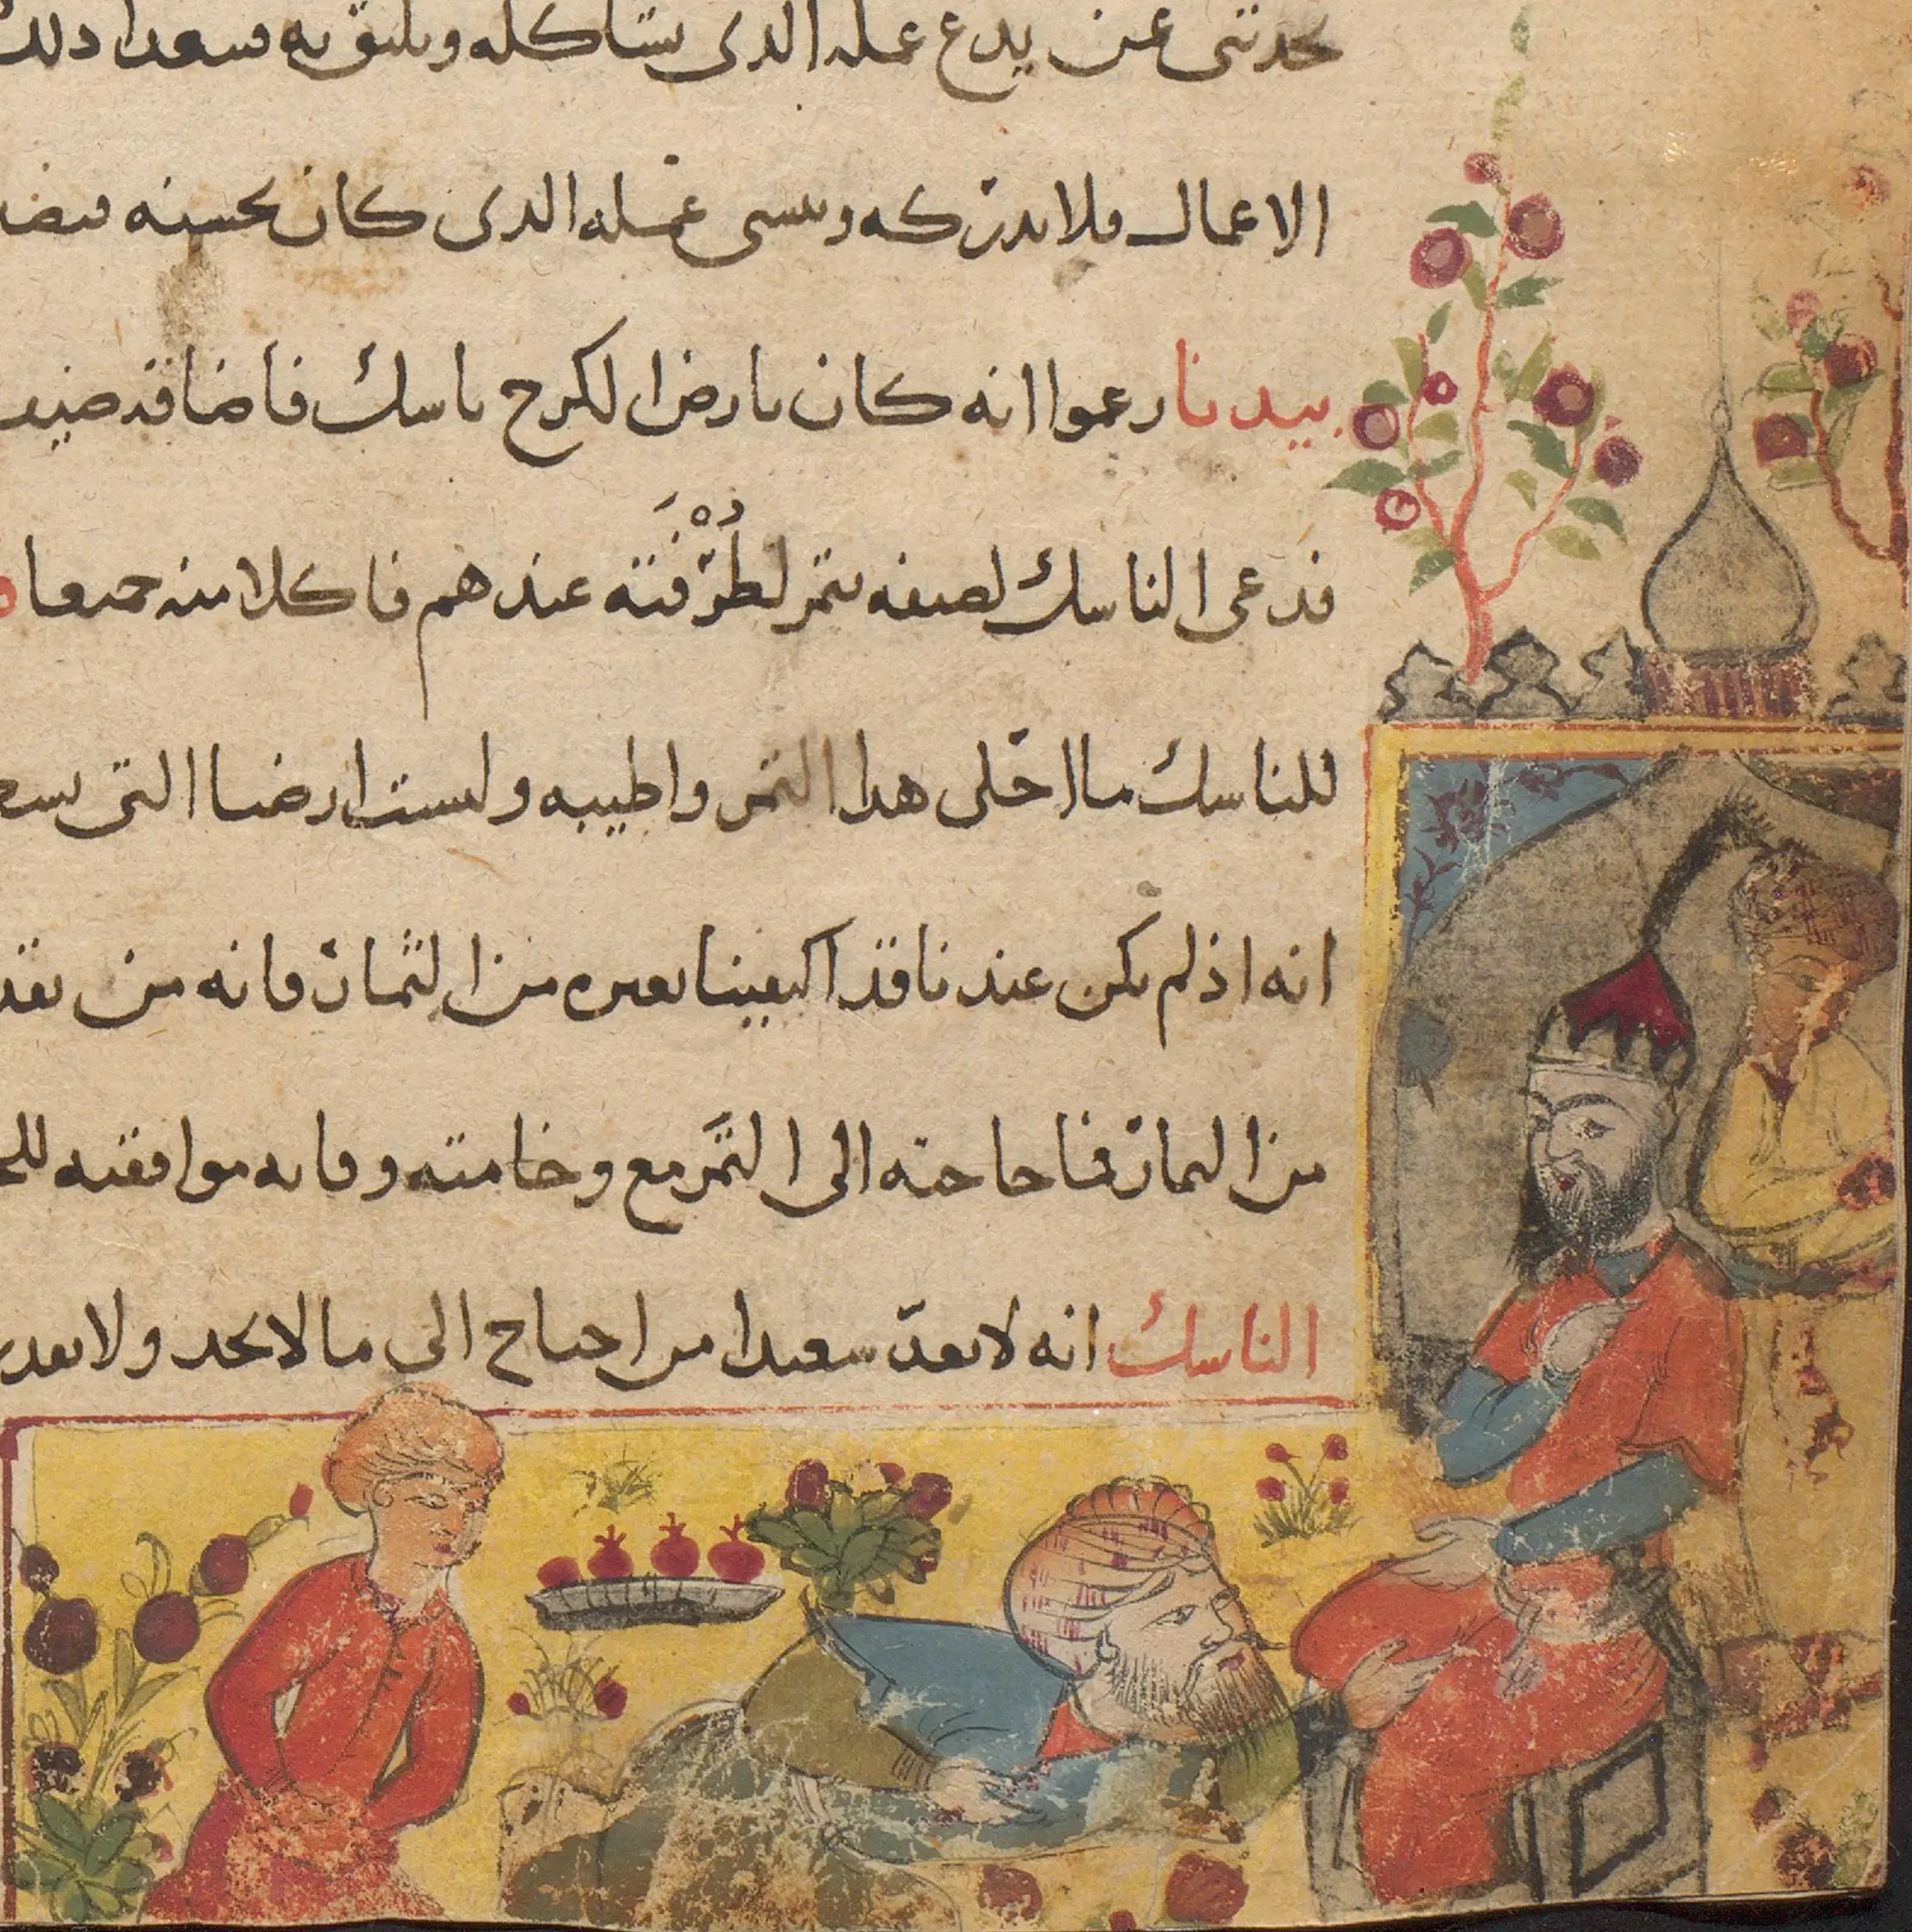 تحدثنى عن يدع عمله الذى يشاكله ويليق به فيبعد ذلك
الاعمال فلا يدركه وينسى عمله الذى كان يحسنه
بيدنا زعموا انه كان بارض الكرخ ناسك فاضافه ضيف
فدعى الناسك لضيفه بتمر لطُرْفَته عندهم فاكلا منه جميعا
للناسك ما احلى هدا التمر واطيبه وليست ارضنا التى
انه اذ لم يكن عندنا قد اكتفينا بغيره من الثمار فانه من
من الثمار فما حاجته الى التمر مع وخامته وقله موافقته
الناسك انه لا يعد سعيدا من احتاج الى ما لا يجد ولا يقدر